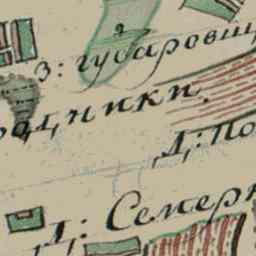 З: губаровщ
адники.
Д: По
Д: Семерн